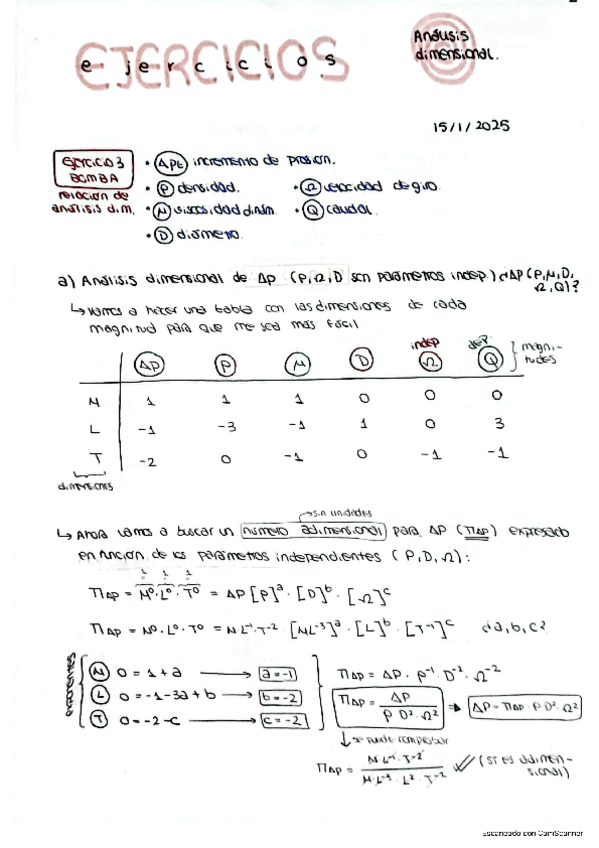 EJERCICIOS
ejercicios
Análisis
dimensional.
15/1/2025
EJERCICIO 3
BOMBA
relación de
análisis dim.
• ΔPt incremento de presión.
• ρ densidad.
• Ω velocidad de giro.
• μ viscosidad dinám.
• Q caudal.
• D diámetro.
a) Análisis dimensional de ΔP (ρ, Ω, D son parámetros indep.) ¿ΔP(ρ, μ, D, Ω, Q)?
↳ vamos a hacer una tabla con las dimensiones de cada
magnitud para que me sea más fácil
indep
ΔP ρ μ D Ω Q } magni-
tudes
M 1 1 1 0 0 0
L -1 -3 -1 1 0 3
T -2 0 -1 0 -1 -1
dimensiones
→ sin unidades
↳ Ahora vamos a buscar un número adimensional para ΔP (ΠΔP) expresado
en función de los parámetros independientes (ρ, D, Ω):
1 1 1
ΠΔP = M⁰·L⁰·T⁰ = ΔP [ρ]ᵃ · [D]ᵇ · [Ω]ᶜ
ΠΔP = M⁰·L⁰·T⁰ = M·L⁻¹·T⁻² · [ML⁻³]ᵃ · [L]ᵇ · [T⁻¹]ᶜ ¿a, b, c?
M 0 = 1 + a → a = -1
L 0 = -1 - 3a + b → b = -2
T 0 = -2 - c → c = -2
ΠΔP = ΔP · ρ⁻¹ · D⁻² · Ω⁻²
ΠΔP = ΔP / ρ D² · Ω² ⇒ ΔP = ΠΔP · ρ D² · Ω²
↓ se puede comprobar
ΠΔP = M·L⁻¹·T⁻² / M·L⁻³·L²·T⁻² ✓✓ (sí es adimen-
sional)
Escaneado con CamScanner